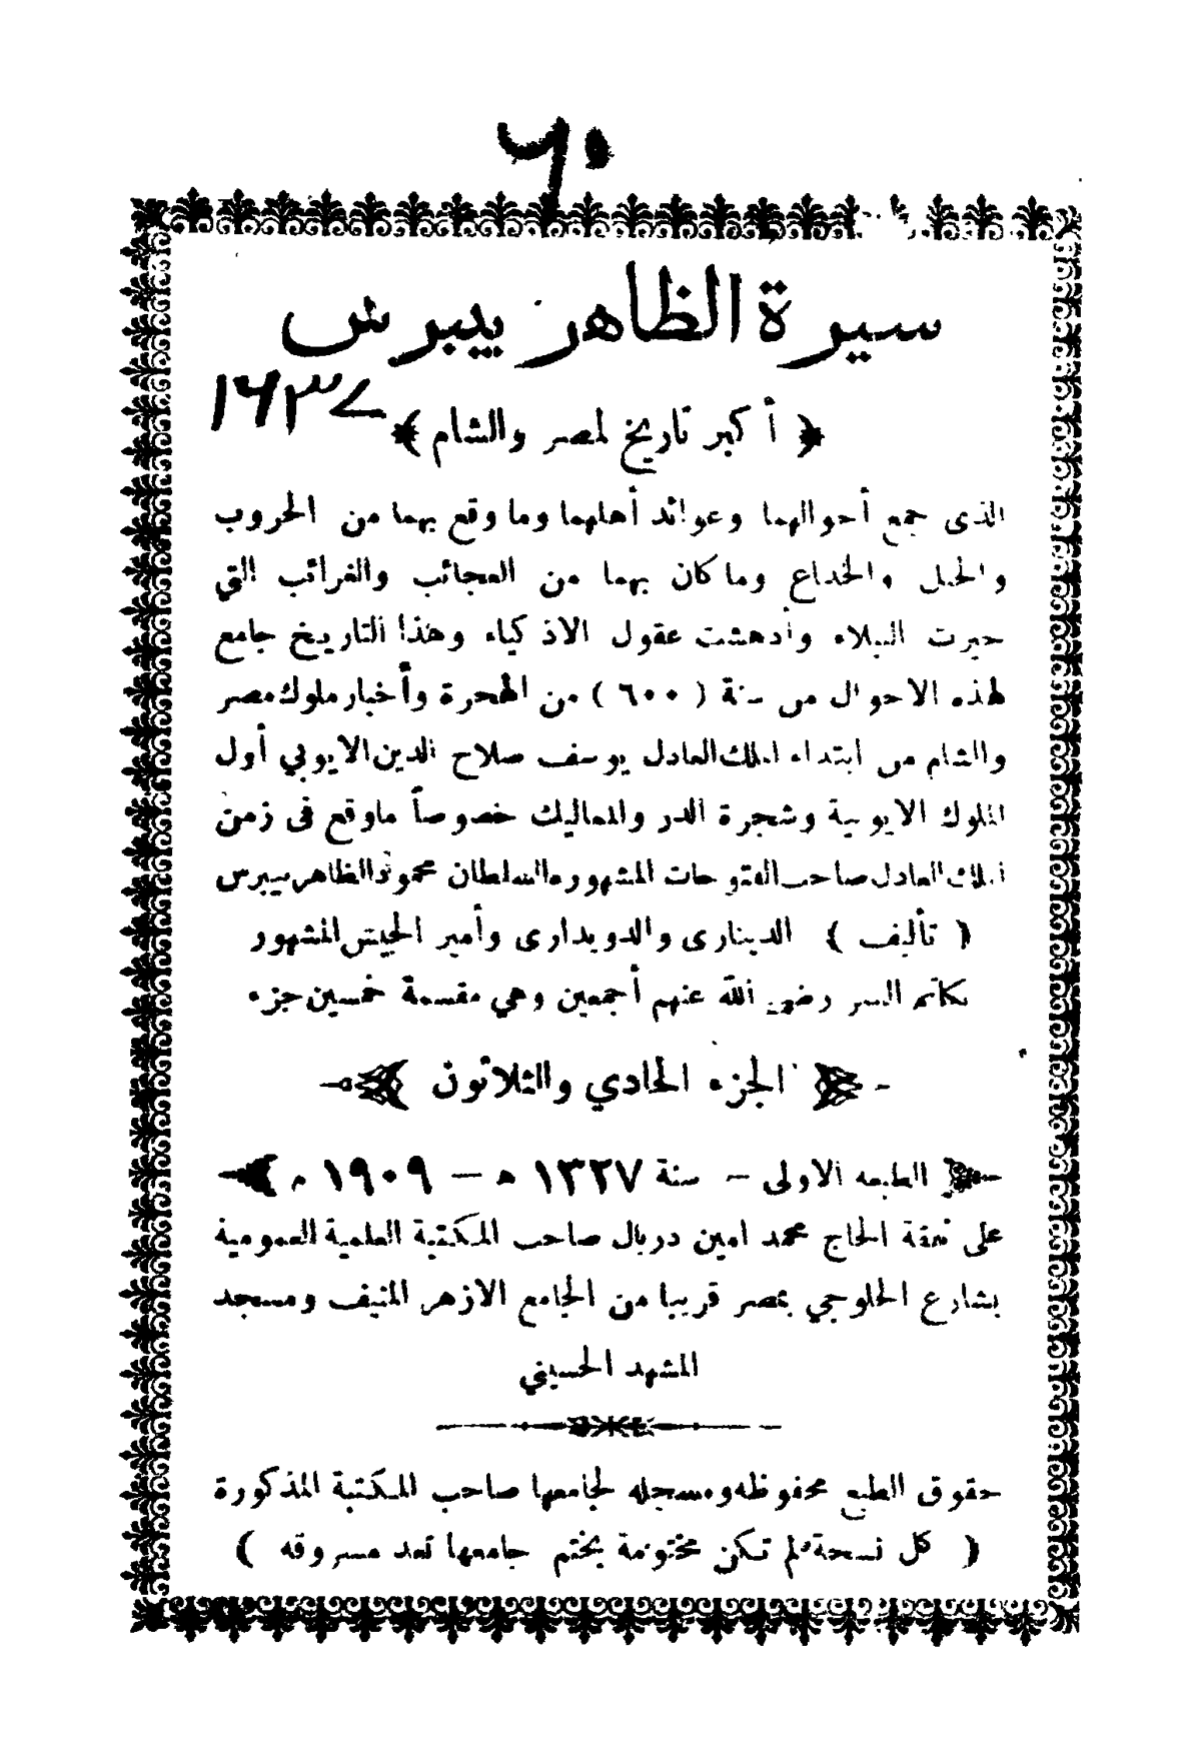 ٦٠
سيرة الظاهر بيبرس
١٦٣٧
﴿ أكبر تاريخ لمصر والشام ﴾
الذى جمع أحوالهما وعوائد أهلهما وما وقع بهما من الحروب
والحيل والخداع وما كان بهما من العجائب والغرائب التي
حيرت النبلاء وأدهشت عقول الاذكياء وهذا التاريخ جامع
لهذه الاحوال من سنة (٦٠٠) من الهجرة وأخبار ملوك مصر
والشام من ابتداء الملك العادل يوسف صلاح الدين الايوبي أول
الملوك الايوبية وشجرة الدر والمماليك خصوصاً ماوقع فى زمن
الملك العادل صاحب الفتوحات المشهورة السلطان محمود الظاهر بيبرس
( تأليف ) الدينارى والدويدارى وأمير الجيش المشهور
بكاتم السر رضي الله عنهم أجمعين وهي مقسمة خمسين جزء
الجزء الحادي والثلاثون
الطبعه الاولى – سنة ١٣٢٧ ه – ١٩٠٩ م
على نفقة الحاج محمد امين دربال صاحب المكتبة العلمية العمومية
بشارع الحلوجي بمصر قريبا من الجامع الازهر المنيف ومسجد
المشهد الحسيني
حقوق الطبع محفوظه ومسجله لجامعها صاحب المكتبة المذكورة
( كل نسخة لم تكن مختومة بختم جامعها تعد مسروقه )